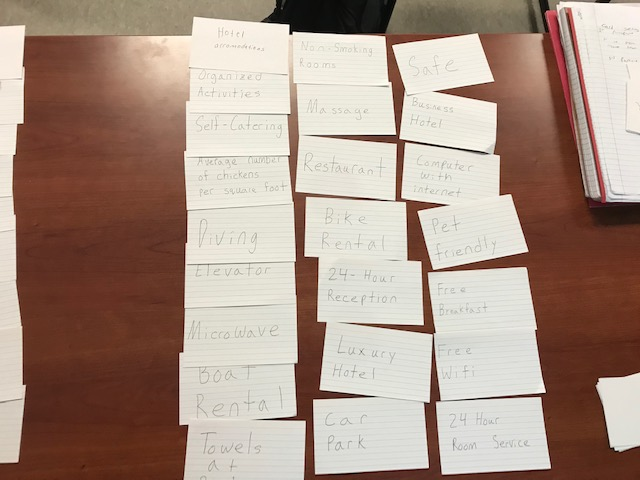 Hotel
Organized
Activities
Self-Catering
Average number
of chickens
per square foot
Diving
Elevator
Microwave
Boat
Rental
Towels
at
Non-Smoking
Rooms
Massage
Restaurant
Bike
Rental
24-Hour
Reception
Luxury
Hotel
Car
Park
Safe
Business
Hotel
Computer
with
internet
Pet
friendly
Free
Breakfast
Free
Wifi
24 Hour
Room Service